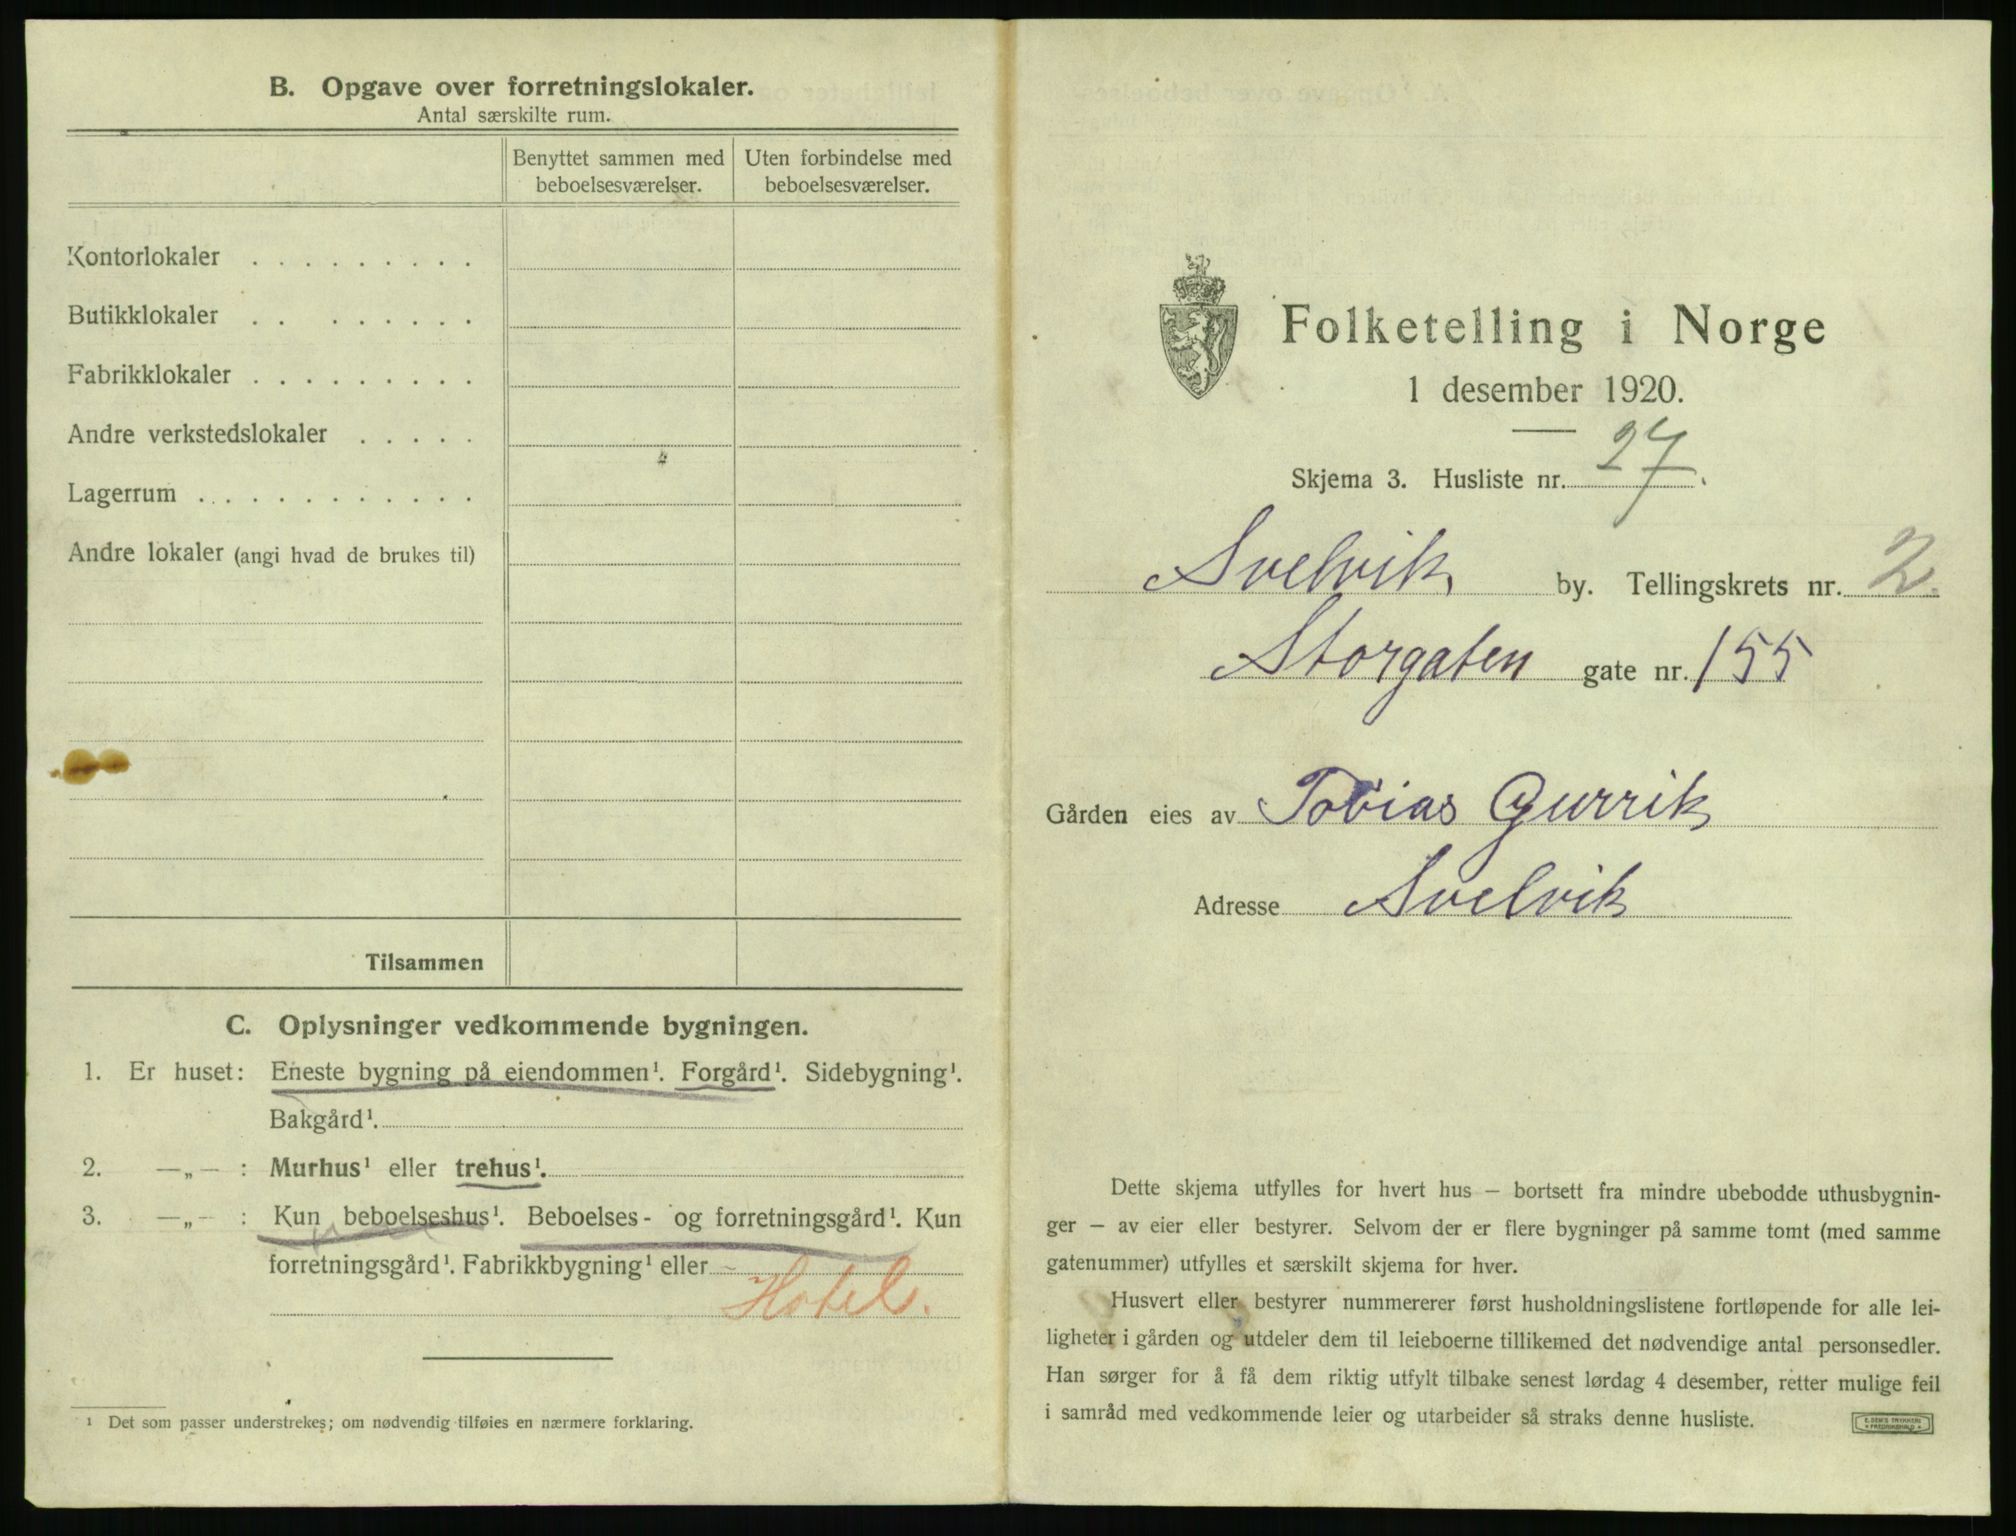 B. Opgave over forretningslokaler.
Antal særskilte rum.
Benyttet sammen med beboelsesværelser.
Uten forbindelse med beboelsesværelser.
Kontorlokaler . . . . . . . . .
Butikklokaler . . . . . . . .
Fabrikklokaler . . . . . . . . .
Andre verkstedslokaler . . . . .
Lagerrum . . . . . . . . . . . .
Andre lokaler (angi hvad de brukes til)
Tilsammen
C. Oplysninger vedkommende bygningen.
1. Er huset: Eneste bygning på eiendommen¹. Forgård¹. Sidebygning¹.
Bakgård¹.
2. —„— : Murhus¹ eller trehus¹.
3. —„— : Kun beboelseshus¹. Beboelses- og forretningsgård¹. Kun
forretningsgård¹. Fabrikkbygning¹ eller
Hotel.
¹ Det som passer understrekes; om nødvendig tilføies en nærmere forklaring.
Folketelling i Norge
1 desember 1920.
Skjema 3. Husliste nr. 27.
Svelvik by. Tellingskrets nr. 2.
Storgaten gate nr. 155
Gården eies av Tobias Gurrik
Adresse Svelvik
Dette skjema utfylles for hvert hus – bortsett fra mindre ubebodde uthusbygnin-
ger – av eier eller bestyrer. Selvom der er flere bygninger på samme tomt (med samme
gatenummer) utfylles et særskilt skjema for hver.
Husvert eller bestyrer nummererer først husholdningslistene fortløpende for alle lei-
ligheter i gården og utdeler dem til leieboerne tillikemed det nødvendige antal personsedler.
Han sørger for å få dem riktig utfylt tilbake senest lørdag 4 desember, retter mulige feil
i samråd med vedkommende leier og utarbeider så straks denne husliste.
E. SEM'S TRYKKERI
FREDRIKSHALD